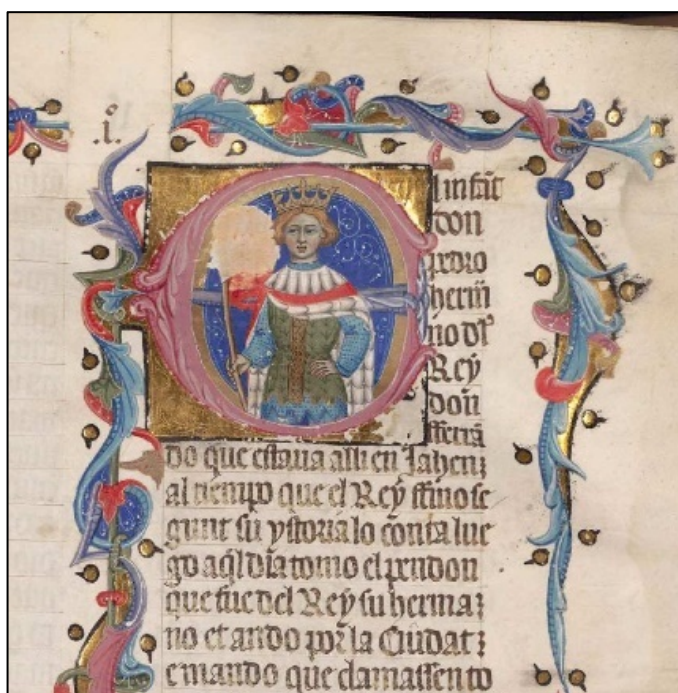 .i.
El infāt
don
pedro
hermā
no dl
Rey
don
fferrā
do que estaua alli en Jahenꝛ
al tienpo que el Rey ffino se
gunt su ystoria lo conta lue
go aq̄l dia tomo el pendon
que fue del Rey su hermaꝛ
no et ando por la Ciudatꝛ
e mando que clamassen to